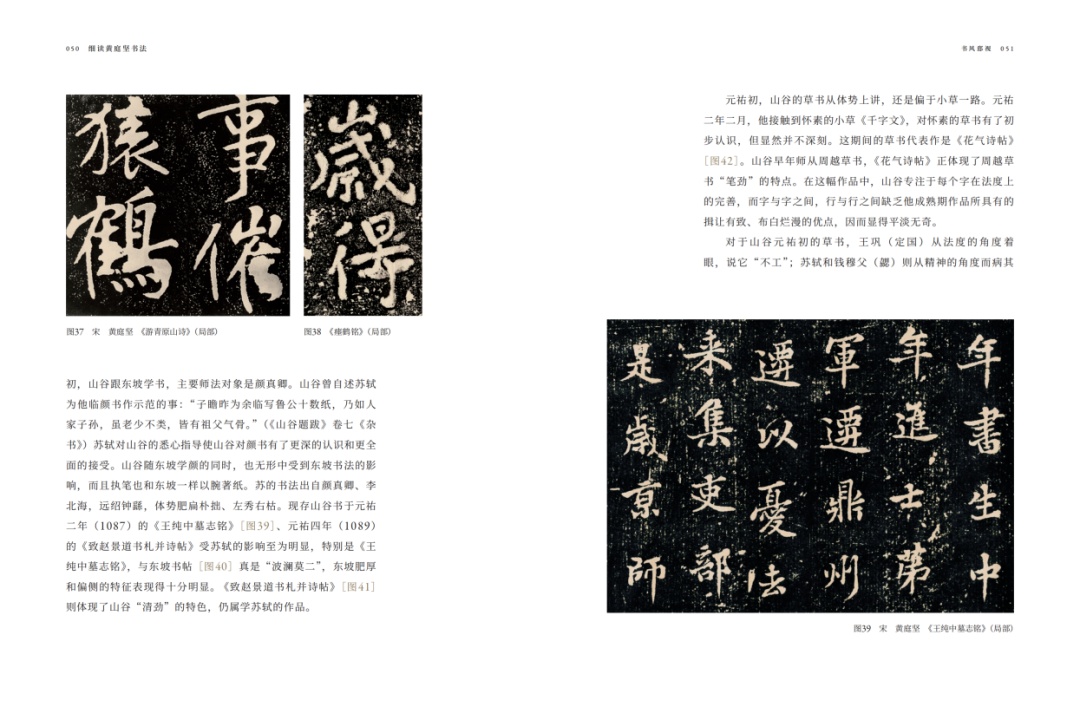 050 细读黄庭坚书法
事催
猿鶴
歲得
图37 宋 黄庭坚 《游青原山诗》（局部）
图38 《瘗鹤铭》（局部）
初，山谷跟东坡学书，主要师法对象是颜真卿。山谷曾自述苏轼
为他临颜书作示范的事：“子瞻昨为余临写鲁公十数纸，乃如人
家子孙，虽老少不类，皆有祖父气骨。”（《山谷题跋》卷七《杂
书》）苏轼对山谷的悉心指导使山谷对颜书有了更深的认识和更全
面的接受。山谷随东坡学颜的同时，也无形中受到东坡书法的影
响，而且执笔也和东坡一样以腕著纸。苏的书法出自颜真卿、李
北海，远绍钟繇，体势肥扁朴拙、左秀右枯。现存山谷书于元祐
二年（1087）的《王纯中墓志铭》［图39］、元祐四年（1089）
的《致赵景道书札并诗帖》受苏轼的影响至为明显，特别是《王
纯中墓志铭》，与东坡书帖［图40］真是“波澜莫二”，东坡肥厚
和偏侧的特征表现得十分明显。《致赵景道书札并诗帖》［图41］
则体现了山谷“清劲”的特色，仍属学苏轼的作品。
书风 051
元祐初，山谷的草书从体势上讲，还是偏于小草一路。元祐
二年二月，他接触到怀素的小草《千字文》，对怀素的草书有了初
步认识，但显然并不深刻。这期间的草书代表作是《花气诗帖》
［图42］。山谷早年师从周越草书，《花气诗帖》正体现了周越草
书“笔劲”的特点。在这幅作品中，山谷专注于每个字在法度上
的完善，而字与字之间，行与行之间缺乏他成熟期作品所具有的
揖让有致、布白烂漫的优点，因而显得平淡无奇。
对于山谷元祐初的草书，王巩（定国）从法度的角度着
眼，说它“不工”；苏轼和钱穆父（勰）则从精神的角度而病其
年書生中
年進士第
軍遷鼎州
遷以憂法
来集吏部
是歲京師
图39 宋 黄庭坚 《王纯中墓志铭》（局部）